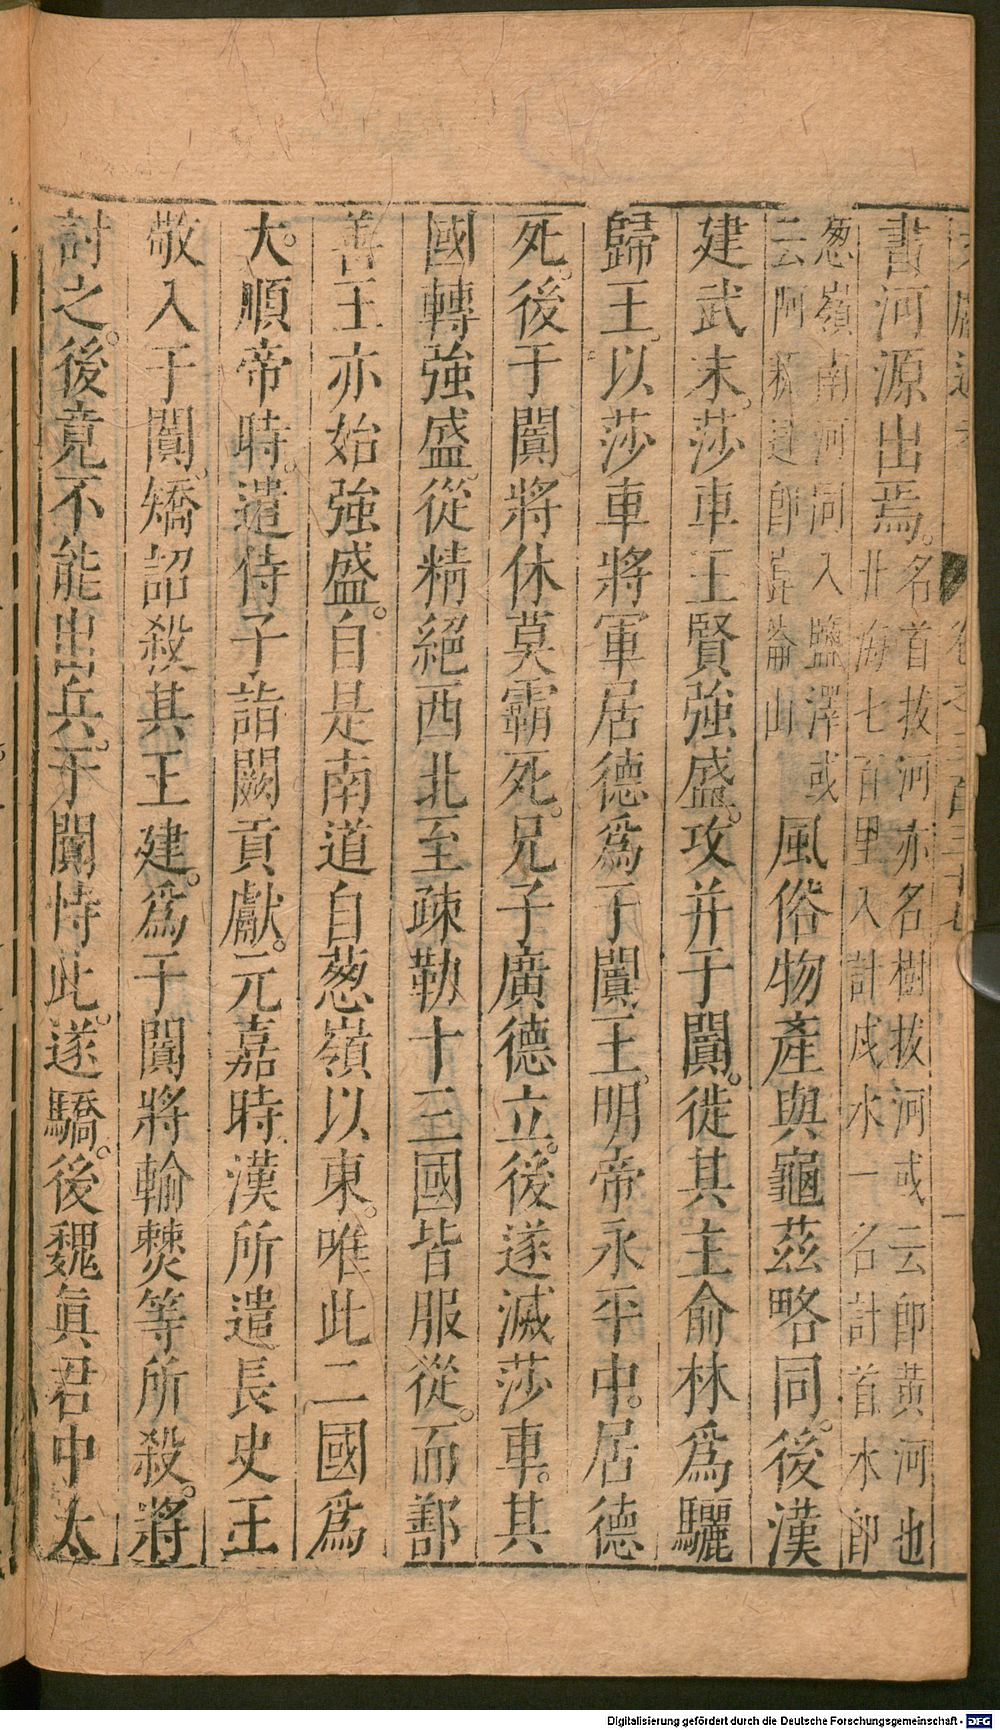 書河源出焉。名首拔河亦名樹拔河或云卽黄河也
北海七百里入計戍水一名計首水卽
葱嶺南河同入鹽澤或
云阿耨達卽崑崙山
風俗物產與龜茲略同。後漢
建武末。莎車王賢強盛。攻并于闐。徙其主俞林爲驪
歸王。以莎車將軍居德爲于闐王。明帝永平中。居德
死。後于闐將休莫霸死。兄子廣德立。後遂滅莎車。其
國轉強盛。從精絕西北至疎勒十三國皆服從。而鄯
善王亦始強盛。自是南道自葱嶺以東。唯此二國爲
大。順帝時。遣侍子詣闕貢獻。元嘉時漢所遣長史王
敬入于闐。矯詔殺其王建。爲于闐將輸僰等所殺。將
討之。後竟不能出兵。于闐恃此。遂驕。後魏眞君中太
Digitalisierung gefördert durch die Deutsche Forschungsgemeinschaft - DFG